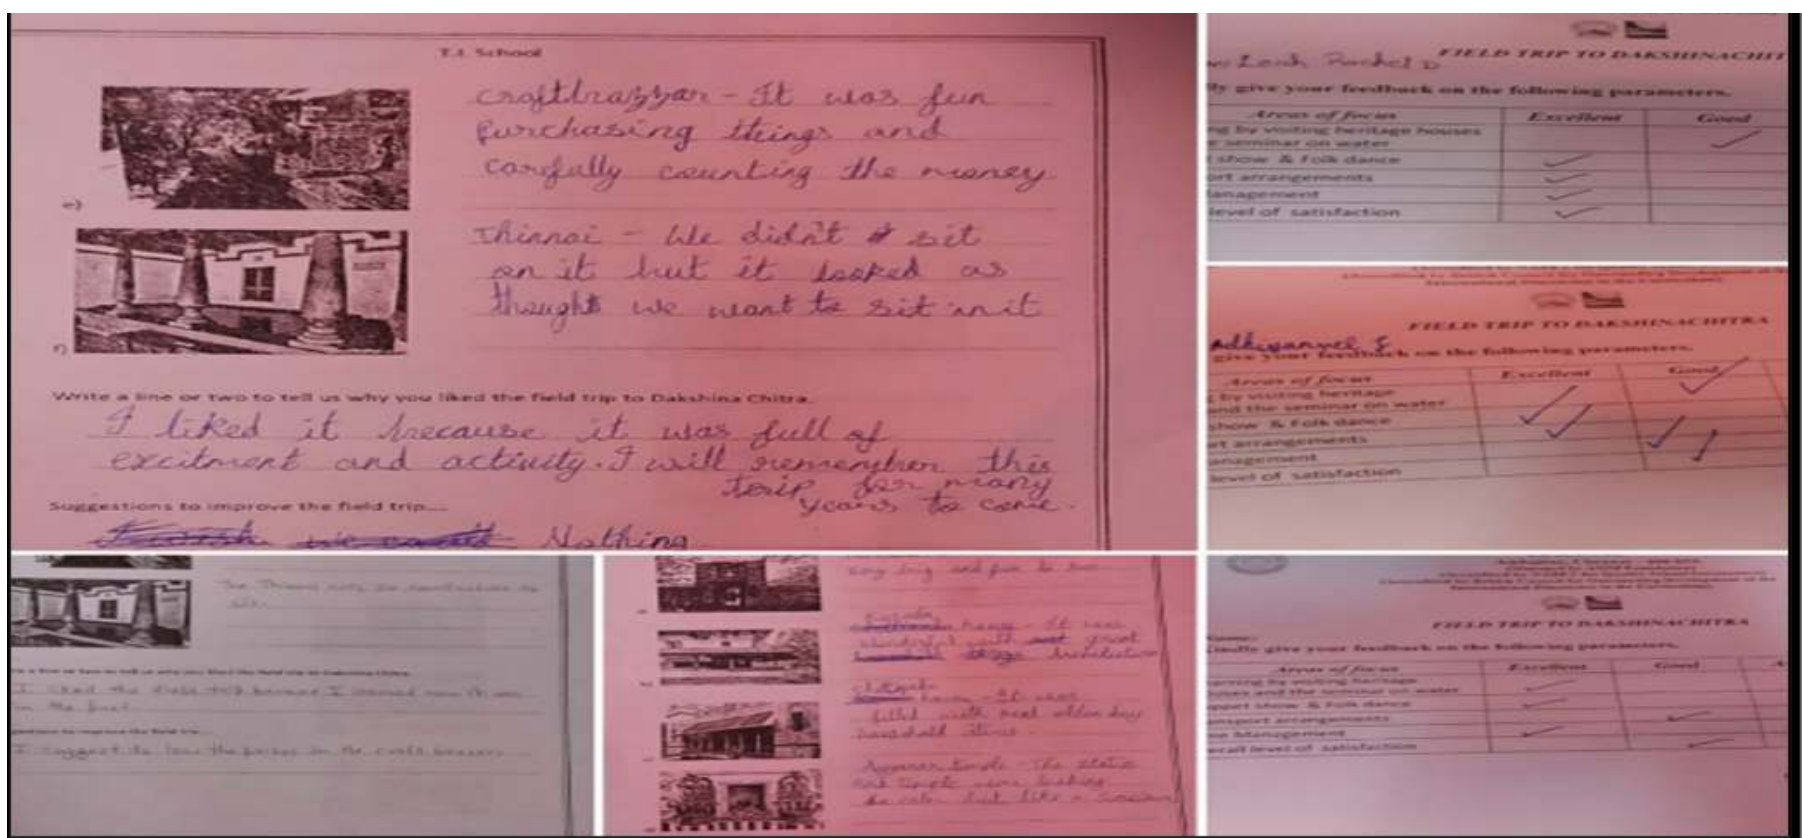 T.I. School
craftbazzar - It was fun
purchasing things and
carefully counting the money
e)
Thinnai - We didn't sit
on it but it looked as
thought we want to sit in it
f)
Write a line or two to tell us why you liked the field trip to Dakshina Chitra.
I liked it because it was full of
excitment and activity. I will remember this
trip for many
years to come.
Suggestions to improve the field trip...
Nothing
FIELD TRIP TO DAKSHINACHIT
Leah Rachel D
ly give your feedback on the following parameters.
Areas of focus Excellent Good
ng by visiting heritage houses
e seminar on water
t show & Folk dance
ort arrangements
anagement
level of satisfaction
FIELD TRIP TO DAKSHINACHITRA
give your feedback on the following parameters.
Areas of focus Excellent Good
g by visiting heritage
and the seminar on water
show & Folk dance
rt arrangements
anagement
level of satisfaction
The Thinnai was so comfortable to
sit.
e a line or two to tell us why you liked the field trip to Dakshina Chitra.
I liked the field trip because I learned how it was
in the past
I suggest to less the prices in the craft bazaar.
very big and fun to
house - It was
wonderful with great
house - It was
filled with real olden day
household items.
Ayyanar temple - The statue
and temple were looking
but like a
FIELD TRIP TO DAKSHINACHITRA
Name:
Kindly give your feedback on the following parameters.
Areas of focus Excellent Good A
arning by visiting heritage
ouses and the seminar on water
uppet show & Folk dance
ansport arrangements
me Management
erall level of satisfaction